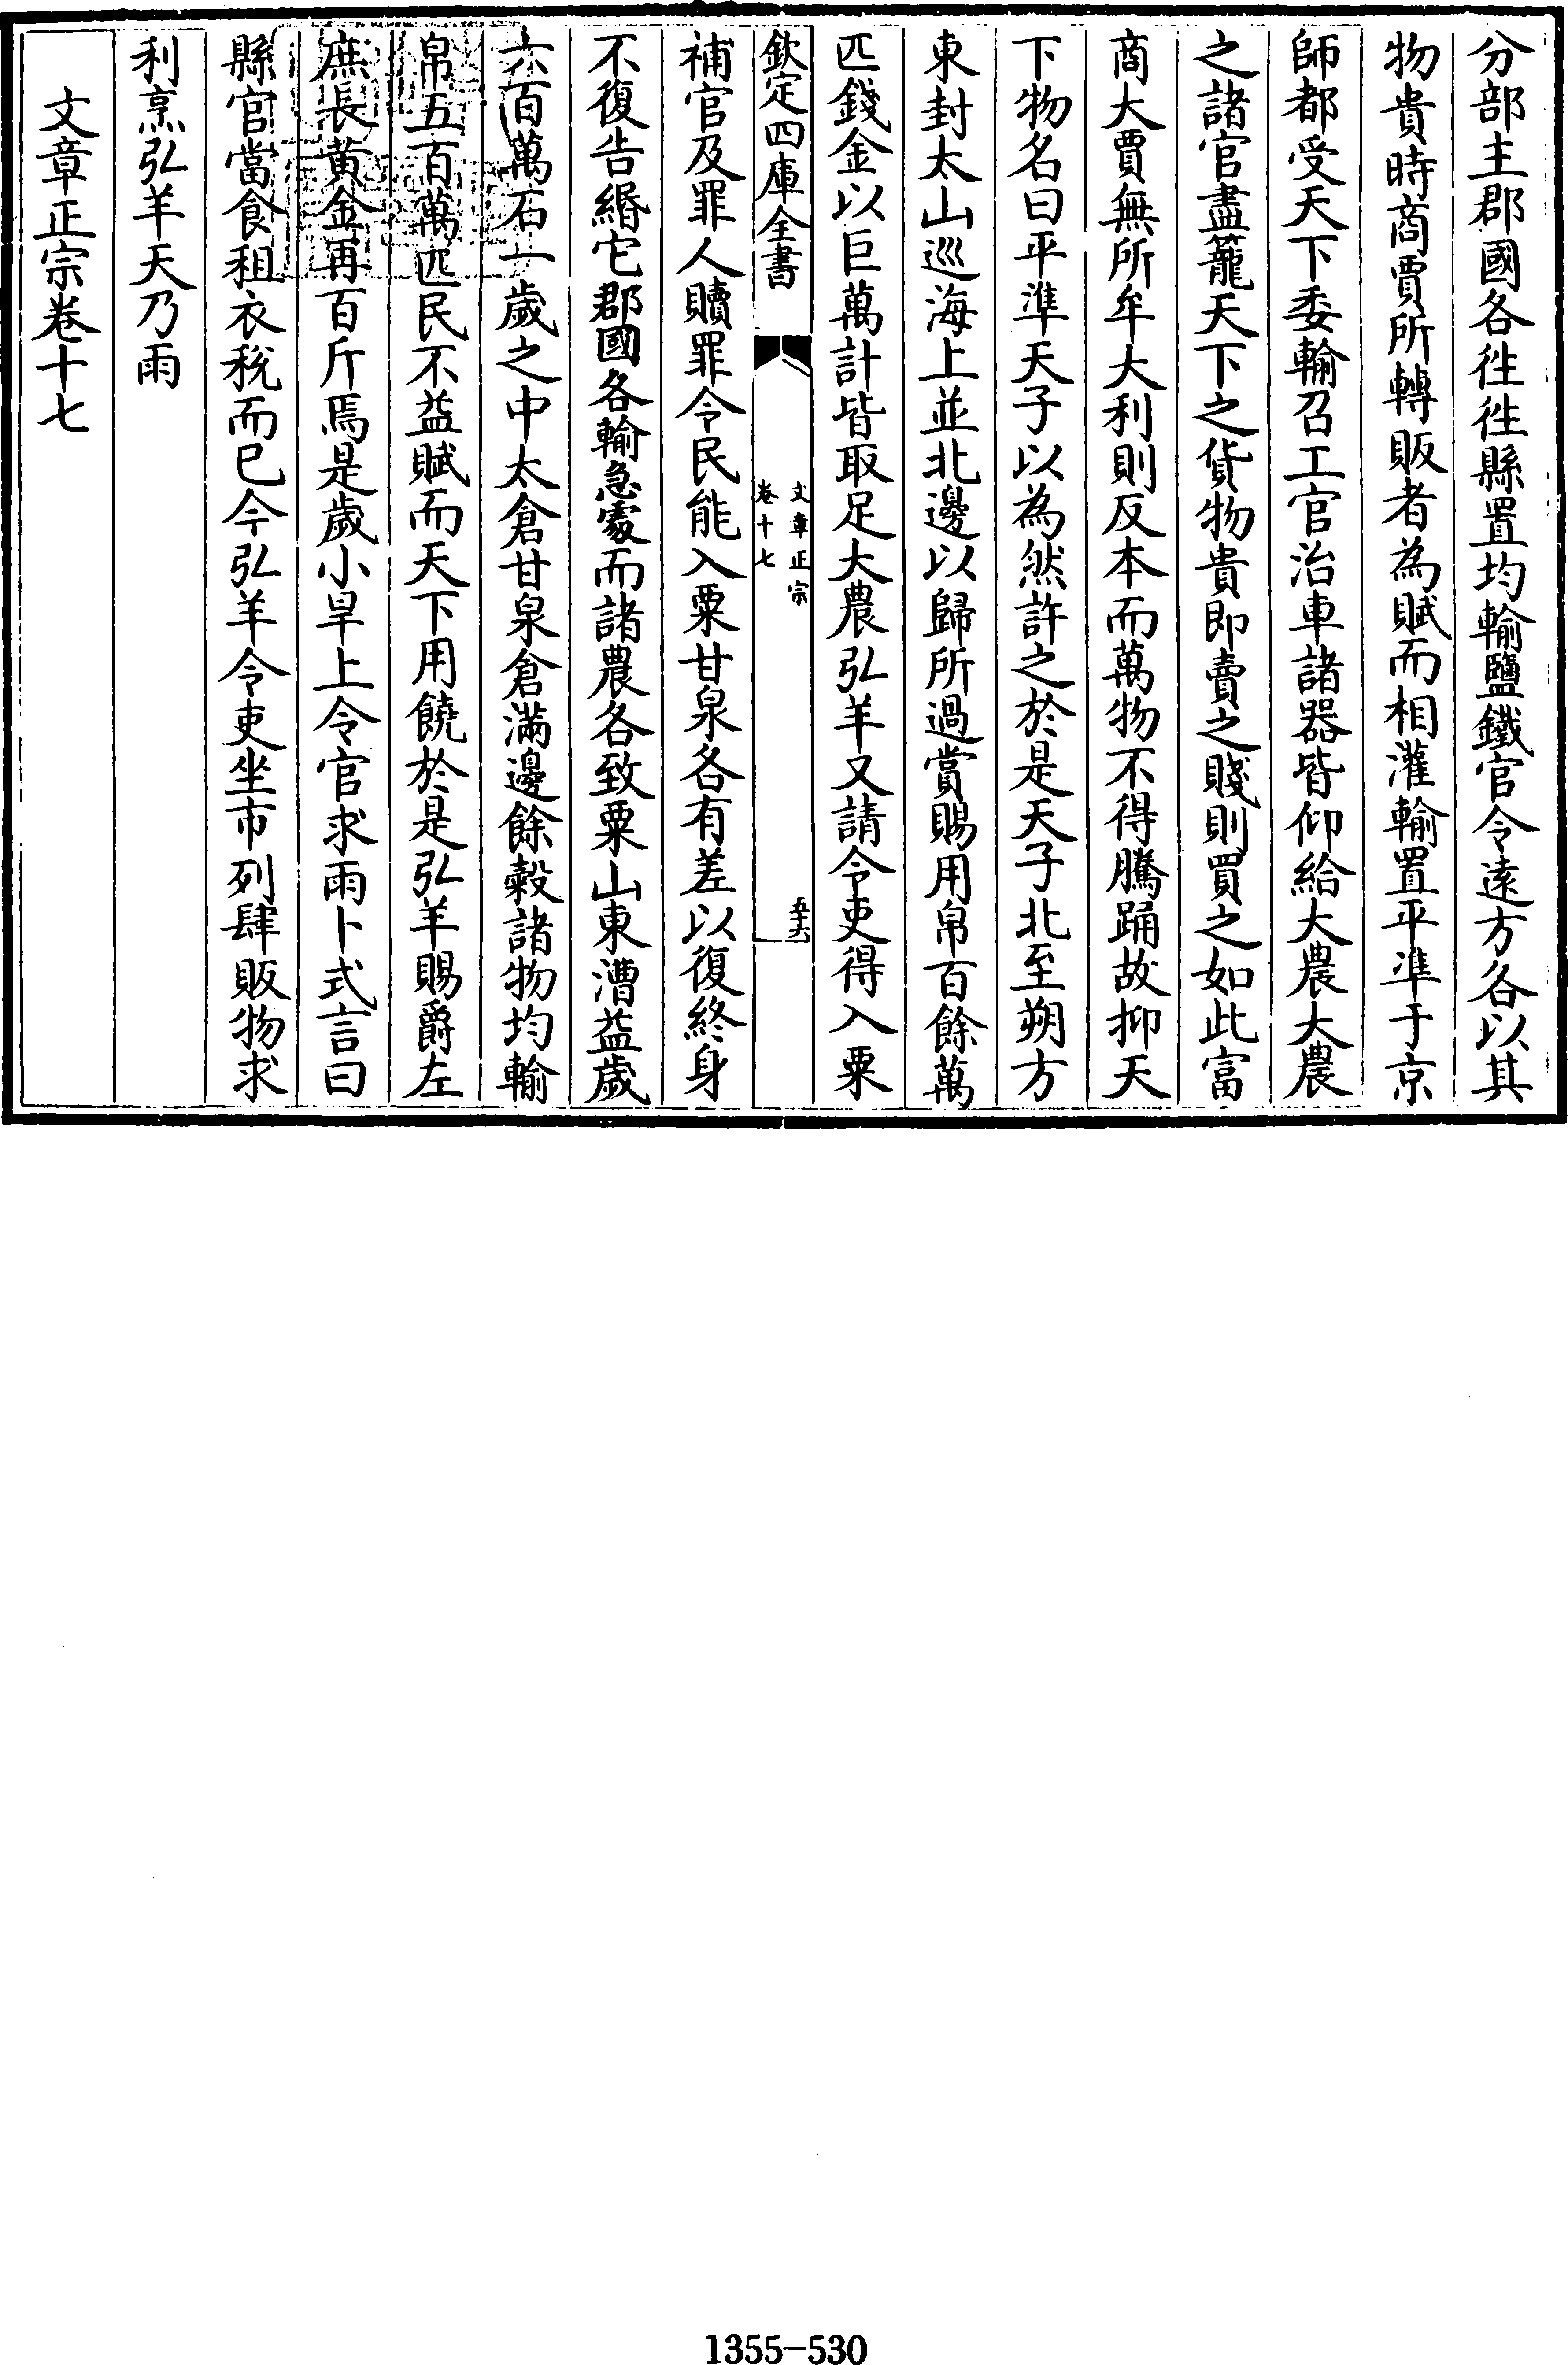 分部主郡國各徃徃縣置均輸鹽鐵官令逺方各以其
物貴時商賈所轉販者為賦而相灌輸置平準于京
師都受天下委輸召工官治車諸器皆仰給大農大農
之諸官盡籠天下之貨物貴即賣之賤則買之如此富
商大賈無所牟大利則反本而萬物不得騰踊故抑天
下物名曰平準天子以為然許之於是天子北至朔方
東封太山巡海上並北邊以歸所過賞賜用帛百餘萬
匹錢金以巨萬計皆取足大農弘羊又請令吏得入粟
欽定四庫全書
文章正宗
卷十七
五十六
補官及罪人贖罪令民能入粟甘泉各有差以復終身
不復告緡它郡國各輸急處而諸農各致粟山東漕益歲
六百萬石一歲之中太倉甘泉倉滿邊餘穀諸物均輸
帛五百萬匹民不益賦而天下用饒於是弘羊賜爵左
庶長黄金再百斤焉是歲小旱上令官求雨卜式言曰
縣官當食租衣稅而已今弘羊令吏坐市列肆販物求
利烹弘羊天乃雨
文章正宗卷十七
1355-530